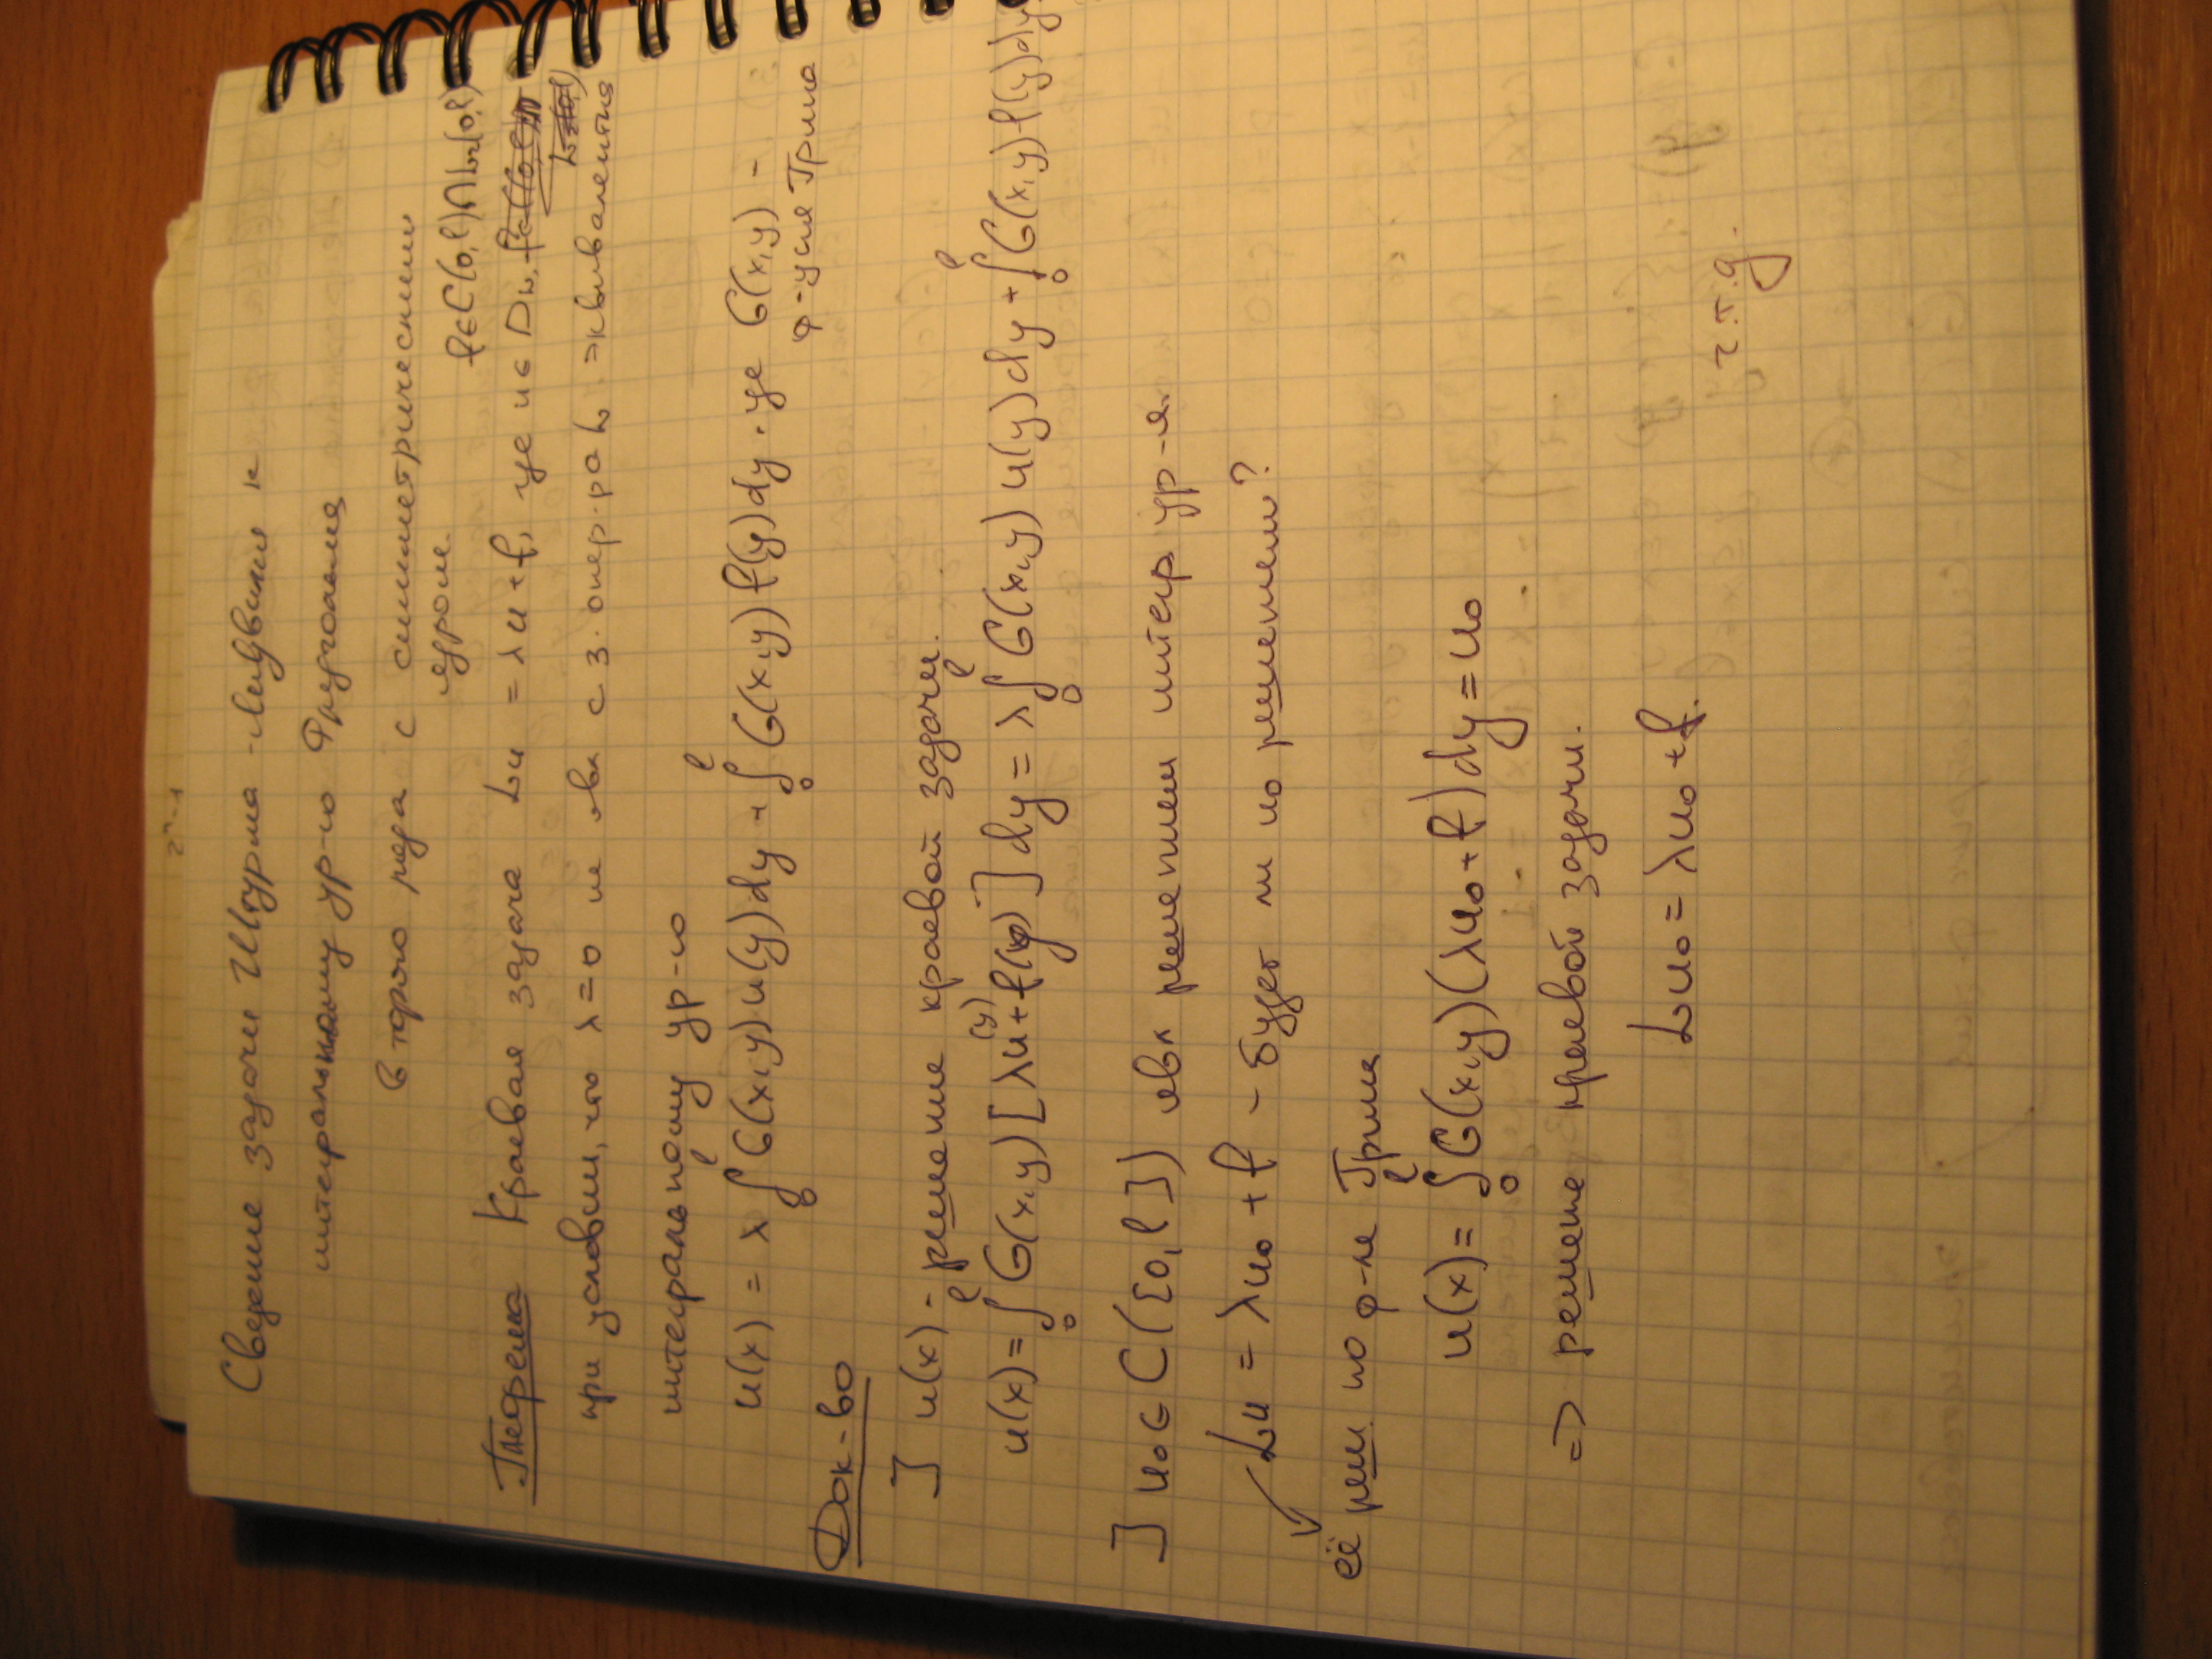 Сведение задачи Штурма-Лиувилля к
интегральному ур-ю Фредгольма
второго рода с симметрическим
ядром.
f∈C(0,l)∩L₂(0,l)
Теорема Краевая задача Lu = λu+f, где u∈D_L,
при условии, что λ=0 не явл с.з. опер-ра L эквивалентна
интегральному ур-ю
u(x) = λ∫₀ˡ G(x,y)u(y)dy + ∫₀ˡ G(x,y)f(y)dy. где G(x,y) -
ф-ция Грина
Док-во
] u(x) - решение краевой задачи.
u(x)=∫₀ˡ G(x,y)[λu(y)+f(y)]dy = λ∫₀ˡ G(x,y)u(y)dy + ∫₀ˡ G(x,y)f(y)dy
] u₀∈C([0,l]) явл решением интегр ур-я.
Lu = λu₀+f - будет ли u₀ решением?
её реш. по ф-ле Грина
u(x)=∫₀ˡ G(x,y)(λu₀+f)dy=u₀
=> решение краевой задачи.
Lu₀=λu₀+f.
ч.т.д.